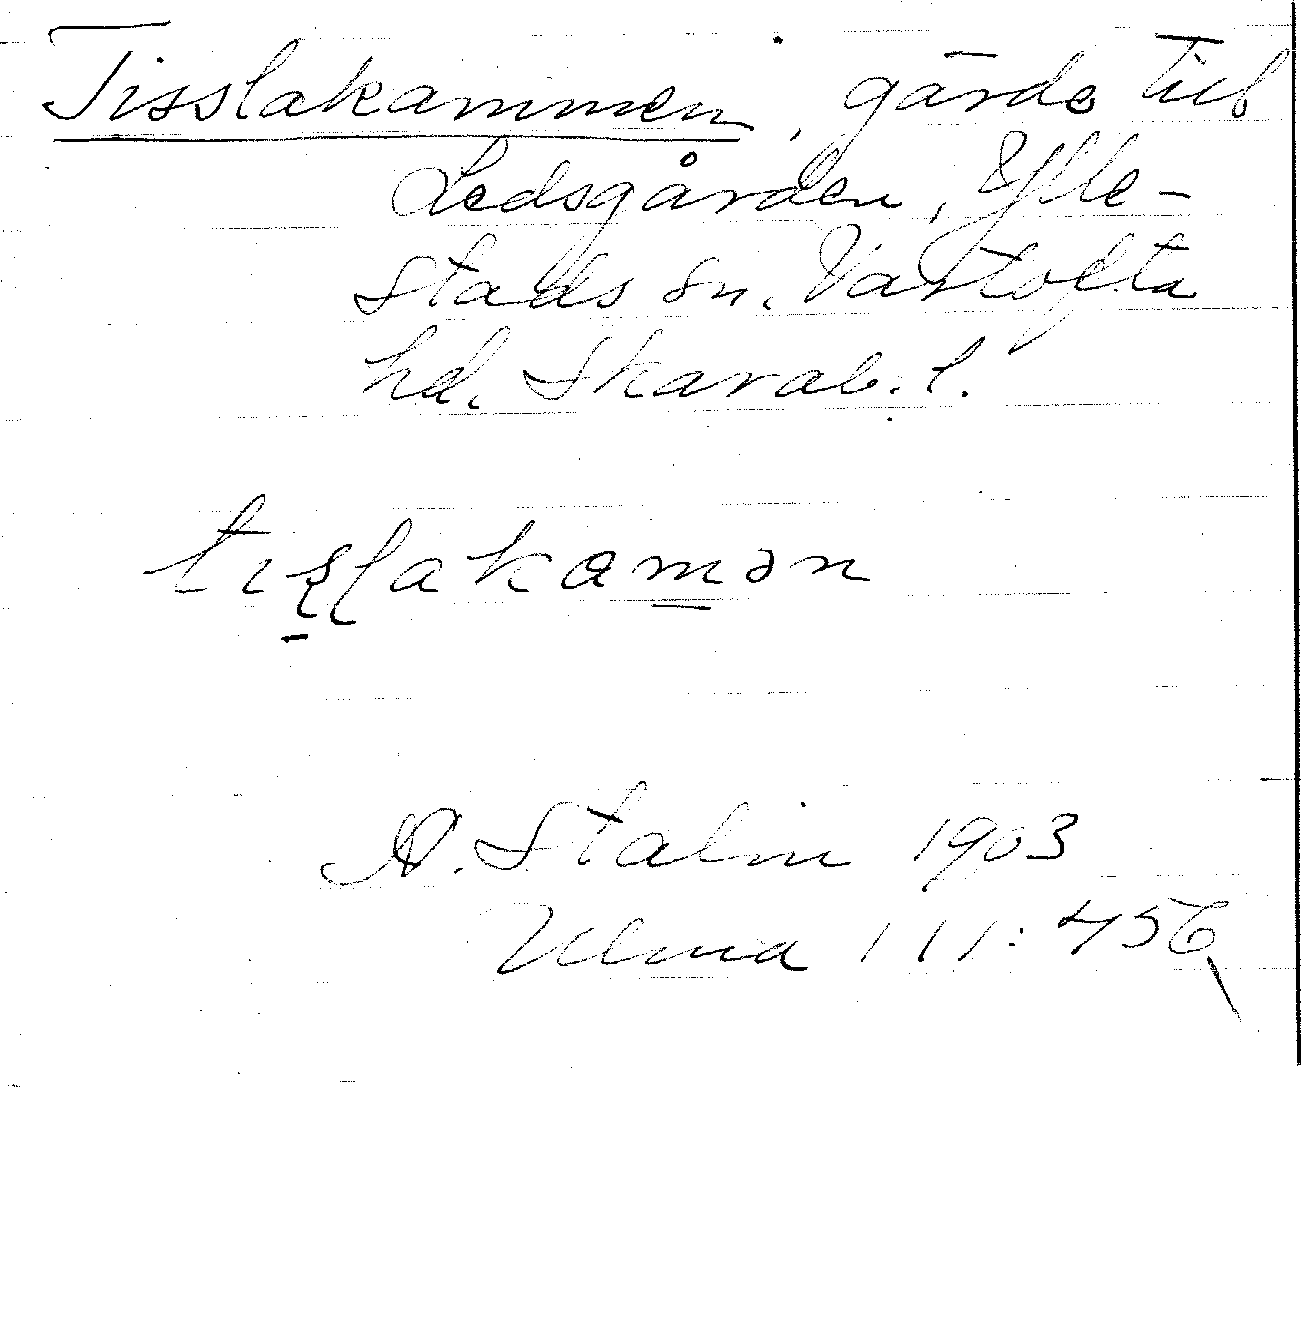 Tisslakammen, gärde till
Ledsgården, Ylle-
stads sn. Vartofta
hd. Skarab. l.
tıslakamən
A. Stalin 1903
Ulma 111:456